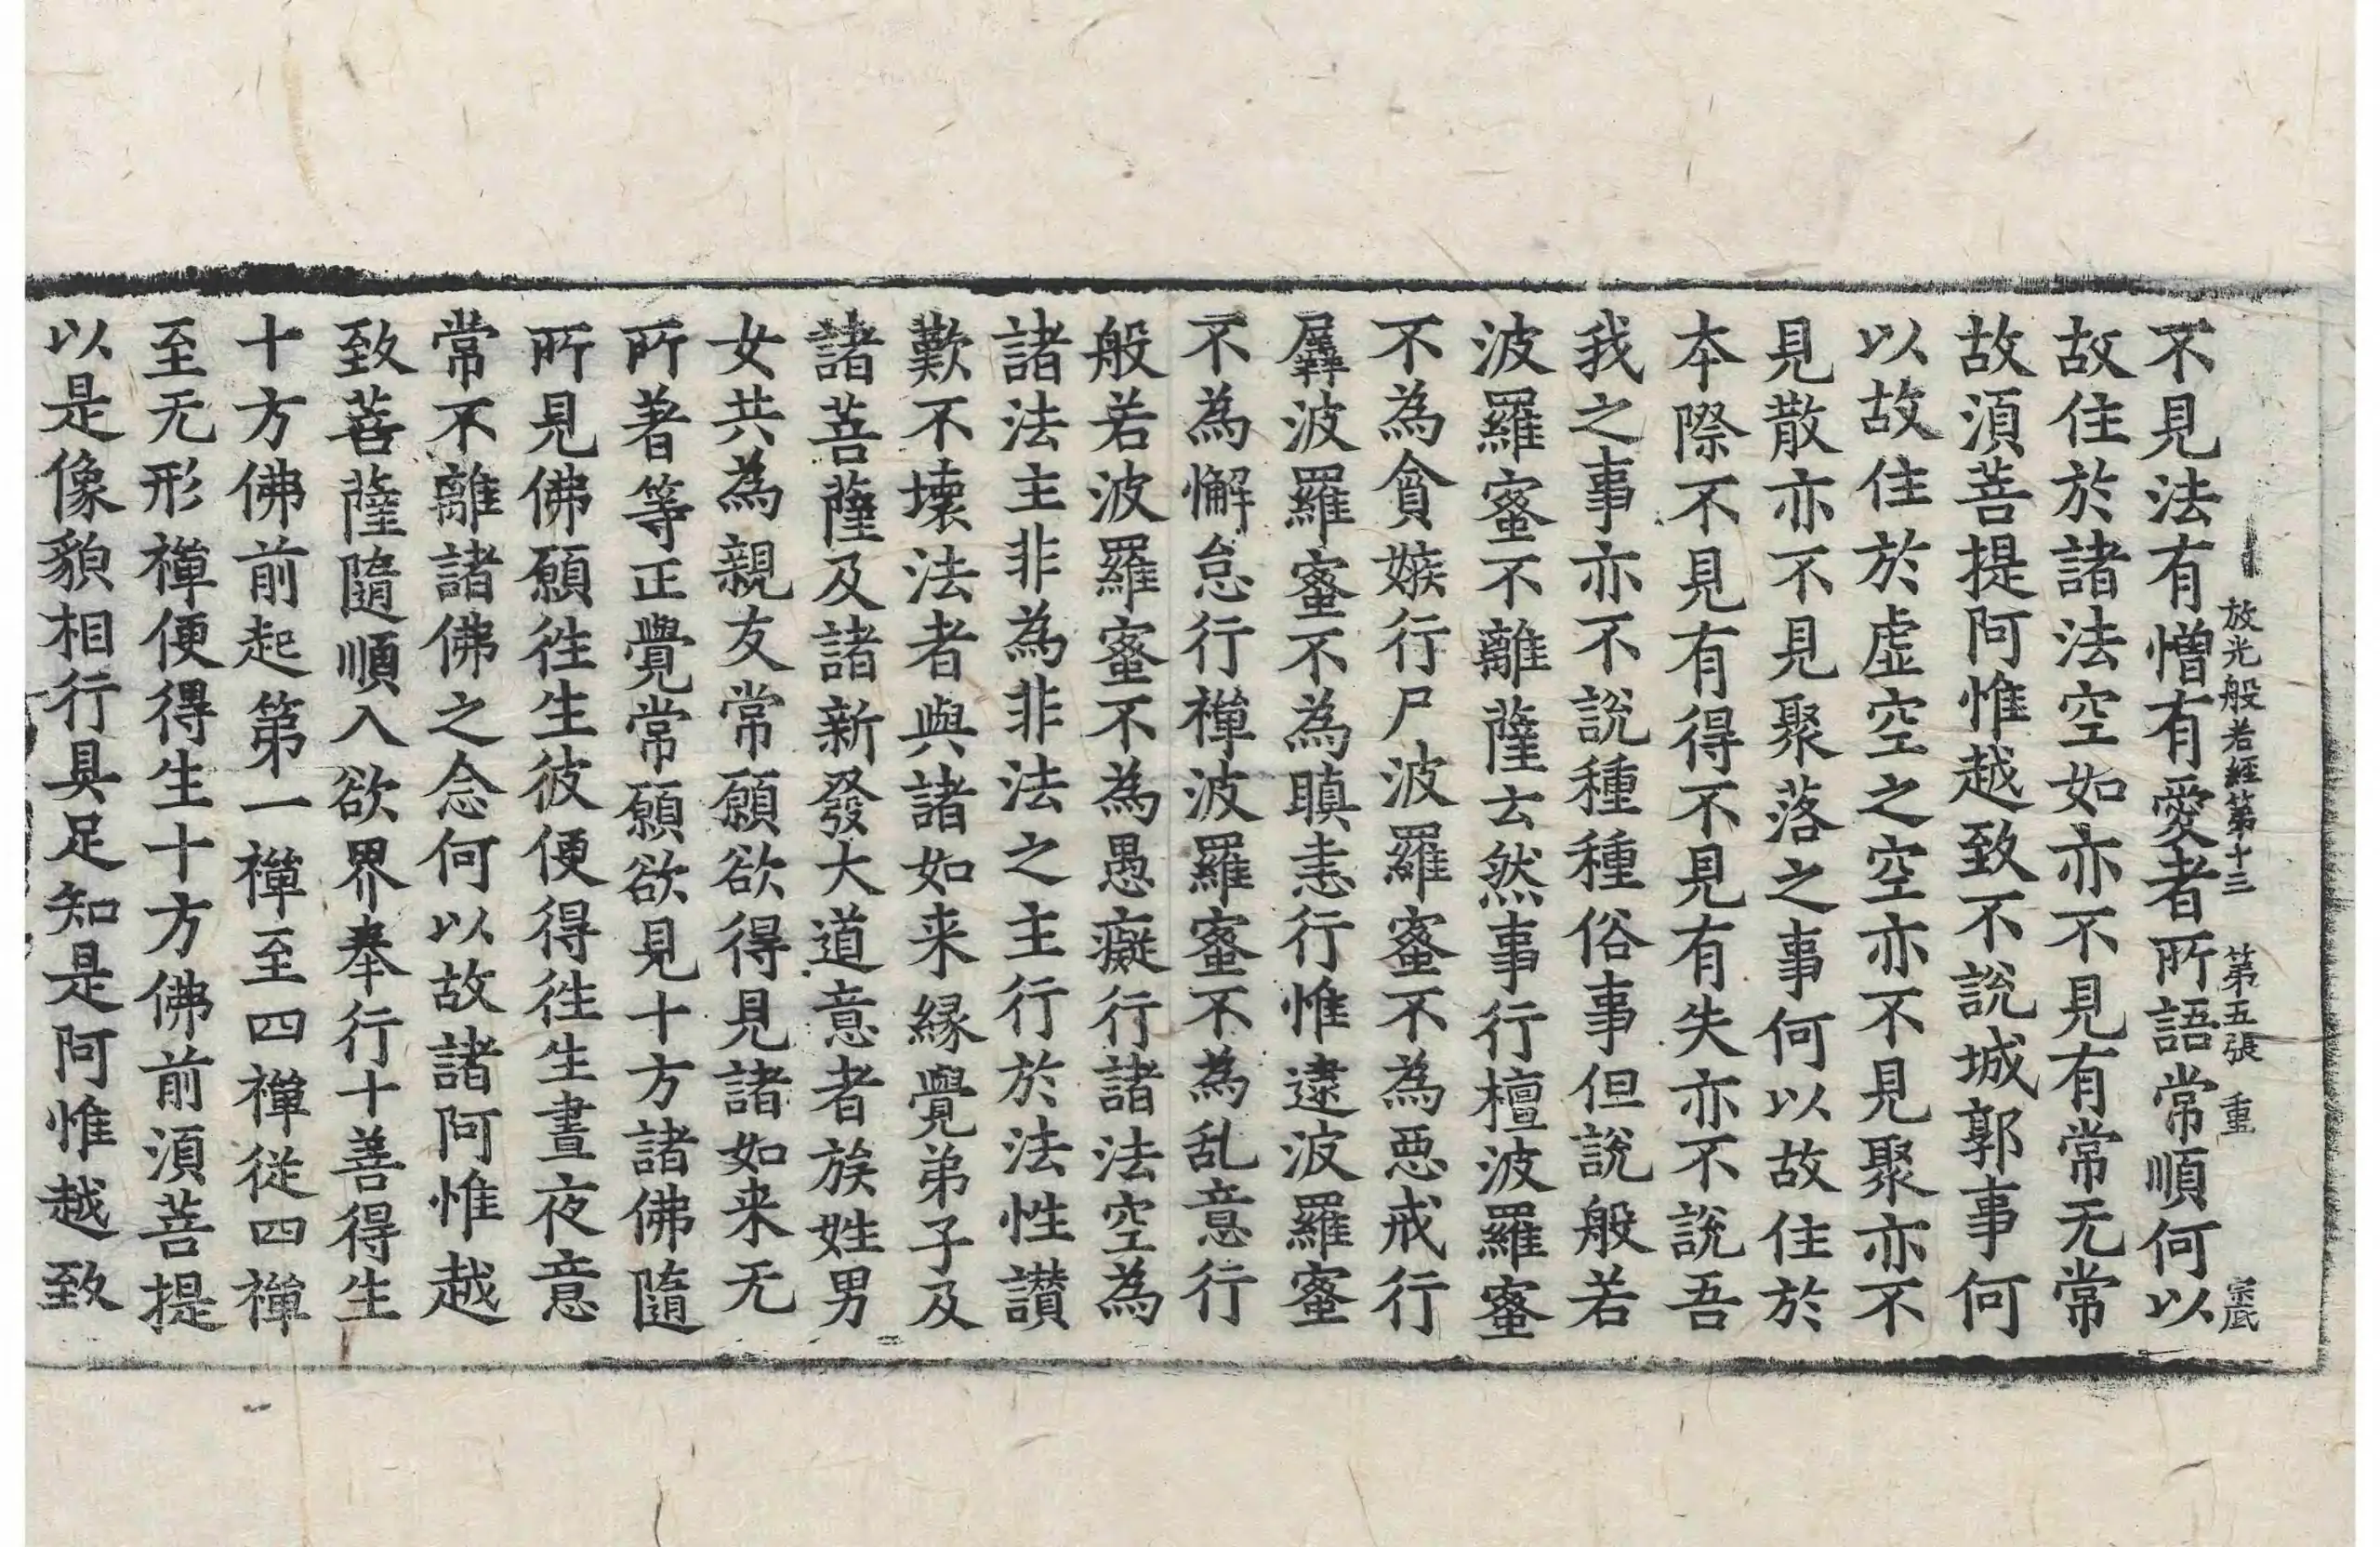 放光般若經第十三 第五張 重 宗底
不見法有憎有愛者所語常順何以
故住於諸法空如亦不見有常无常
故須菩提阿惟越致不說城郭事何
以故住於虛空之空亦不見聚亦不
見散亦不見聚落之事何以故住於
本際不見有得不見有失亦不說吾
我之事亦不說種種俗事但說般若
波羅蜜不離薩云然事行檀波羅蜜
不為貪嫉行尸波羅蜜不為惡戒行
羼波羅蜜不為瞋恚行惟逮波羅蜜
不為懈怠行禪波羅蜜不為乱意行
般若波羅蜜不為愚癡行諸法空為
諸法主非為非法之主行於法性讃
歎不壞法者與諸如来縁覺弟子及
諸菩薩及諸新發大道意者族姓男
女共為親友常願欲得見諸如来无
所著等正覺常願欲見十方諸佛隨
所見佛願徃生彼便得徃生晝夜意
常不離諸佛之念何以故諸阿惟越
致菩薩隨順入欲界奉行十善得生
十方佛前起第一禪至四禪從四禪
至无形禪便得生十方佛前須菩提
以是像貌相行具足知是阿惟越致